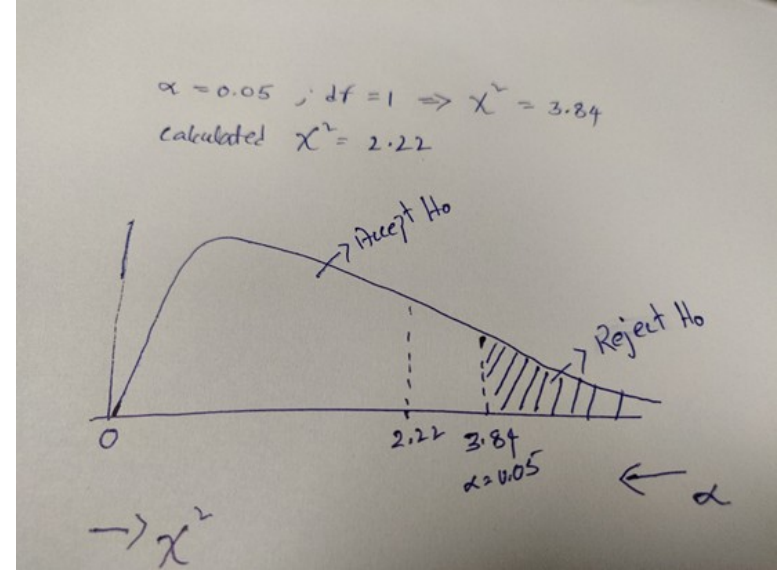 α = 0.05 ; df = 1 ⇒ χ² = 3.84
calculated χ² = 2.22
→ Accept Ho
→ Reject Ho
0
2.22
3.84
α = 0.05
← α
→ χ²